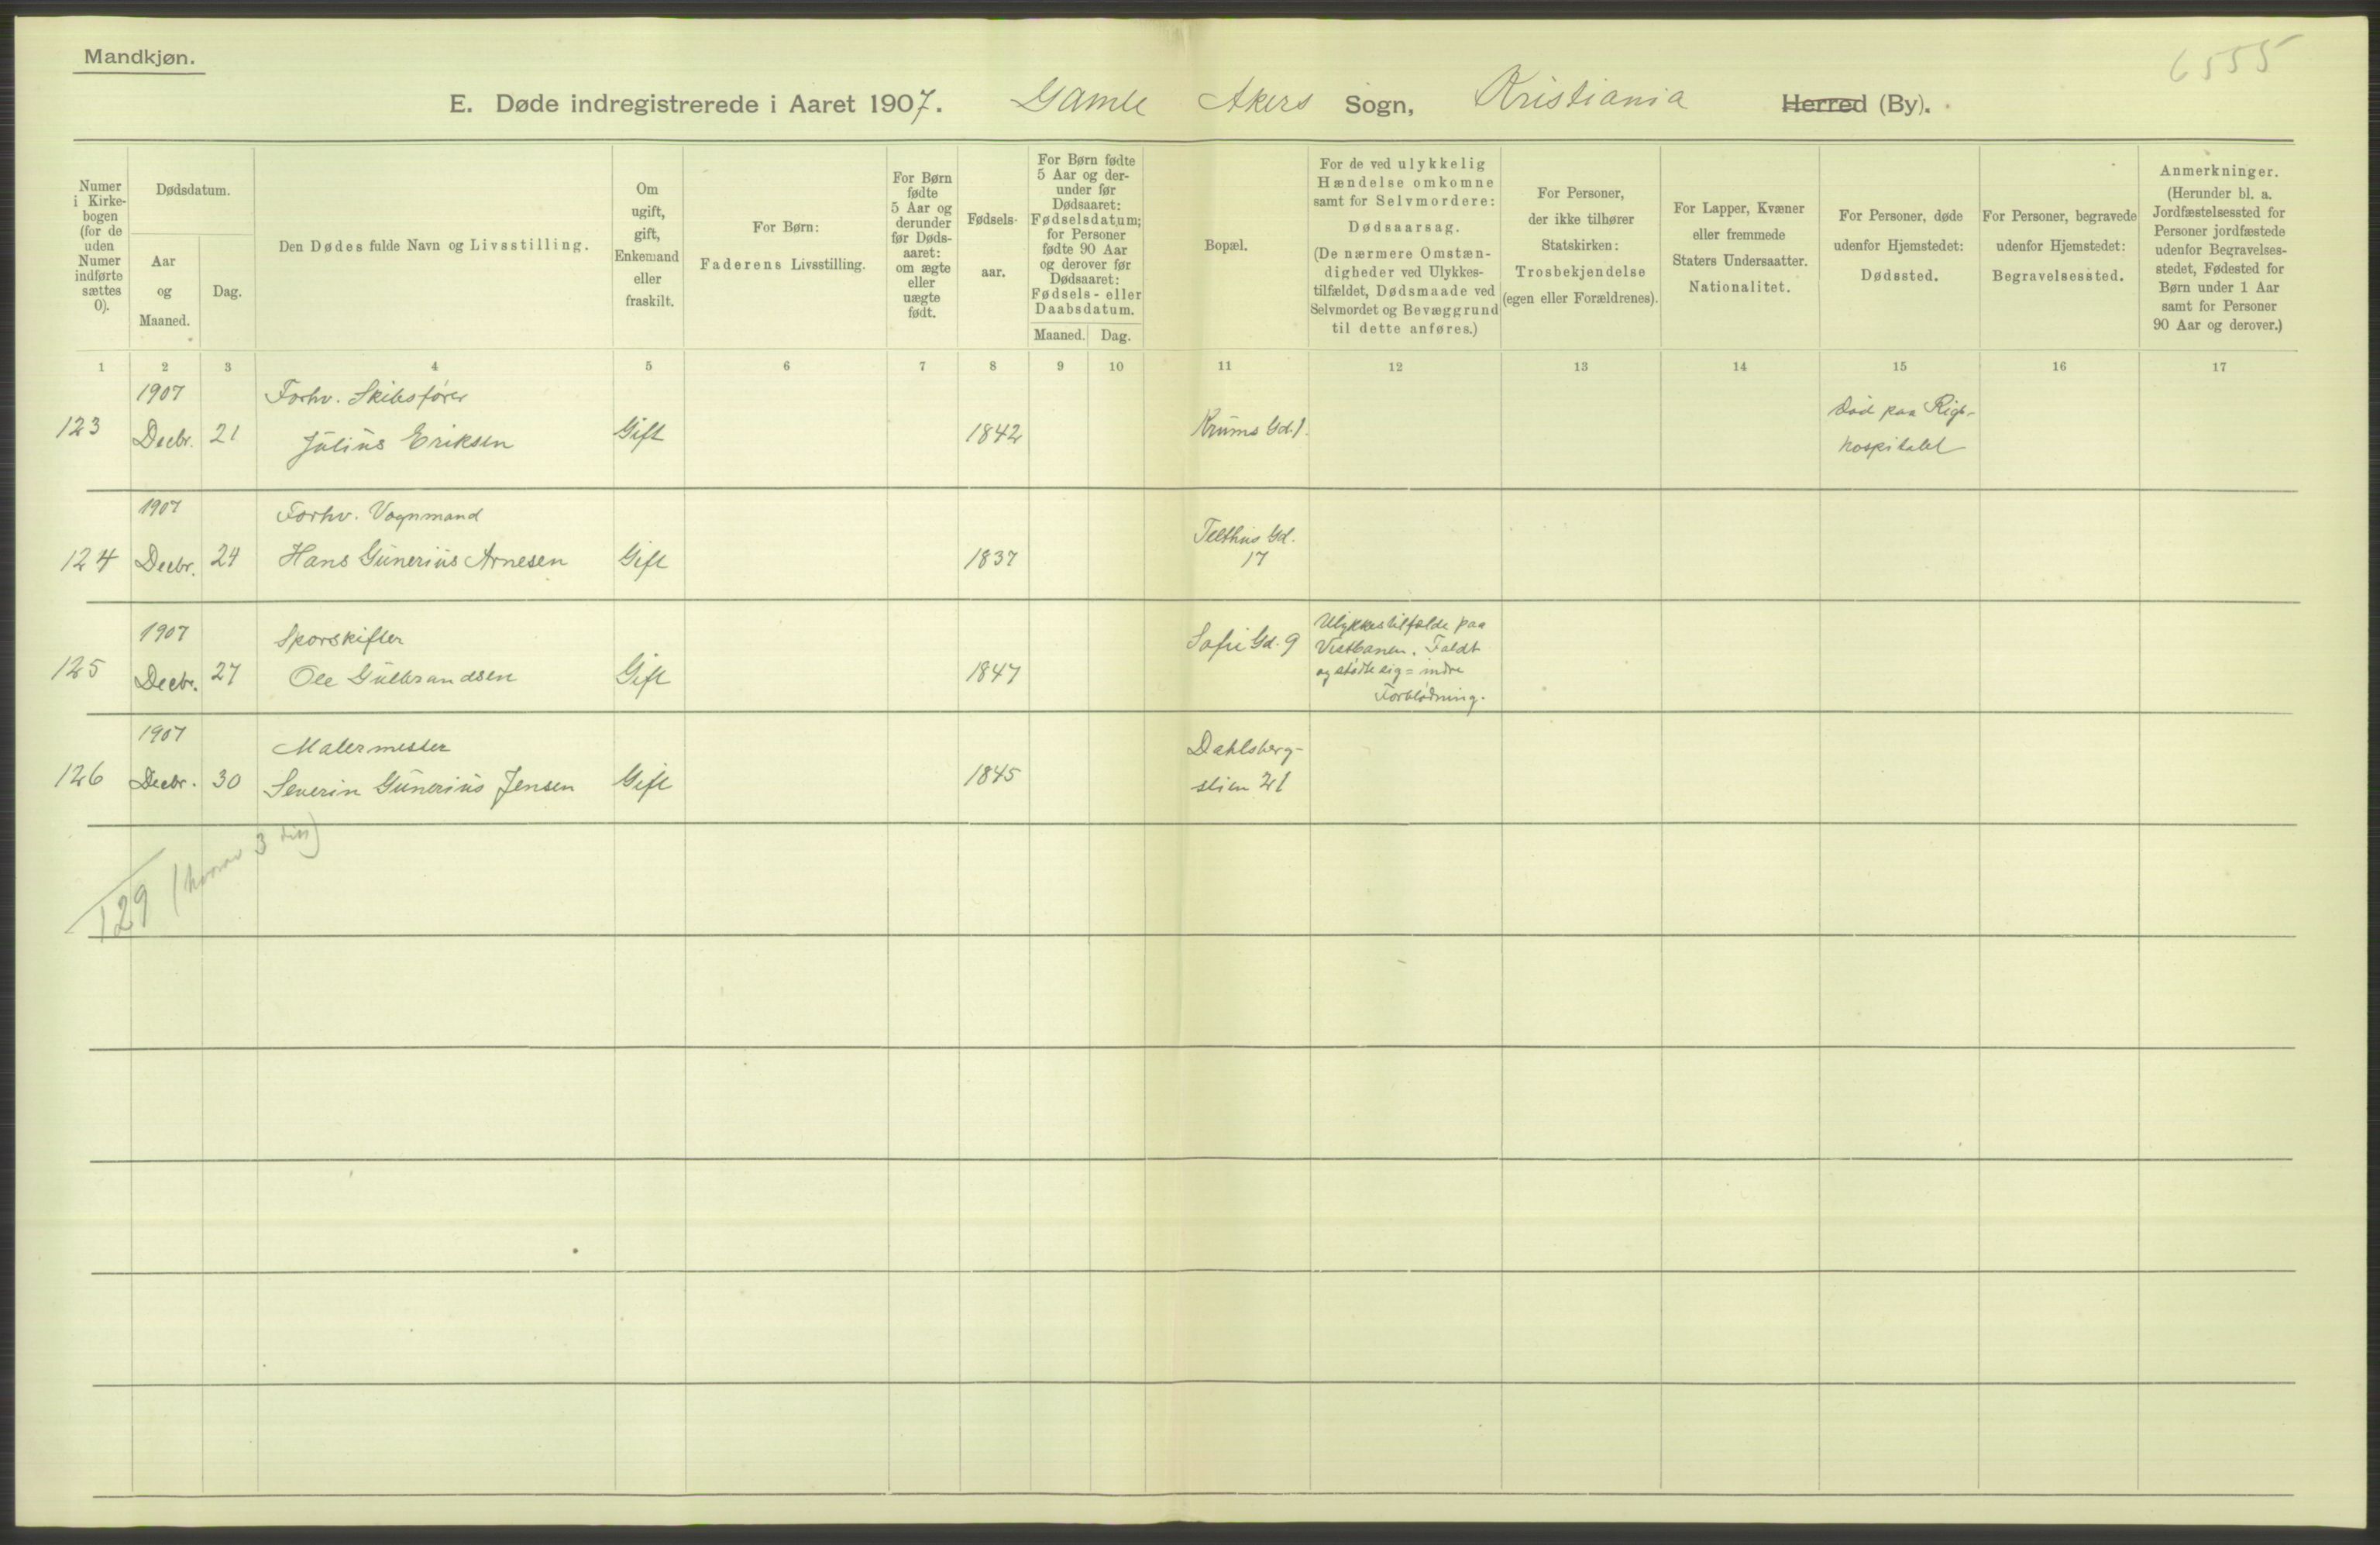 Mandkjøn.
6555
E. Døde indregistrerede i Aaret 1907. Gamle Akers Sogn, Kristiania Herred (By).
Numer
i Kirke-
bogen
(for de
uden
Numer
indførte
sættes
0).
Dødsdatum.
Aar
og
Maaned.
Dag.
Den Dødes fulde Navn og Livsstilling.
Om
ugift,
gift,
Enkemand
eller
fraskilt.
For Børn:
Faderens Livsstilling.
For Børn
fødte
5 Aar og
derunder
før Døds-
aaret:
om ægte
eller
uægte
født.
Fødsels-
aar.
For Børn fødte
5 Aar og der-
under før
Dødsaaret:
Fødselsdatum;
for Personer
fødte 90 Aar
og derover før
Dødsaaret:
Fødsels- eller
Daabsdatum.
Maaned. Dag.
Bopæl.
For de ved ulykkelig
Hændelse omkomne
samt for Selvmordere:
Dødsaarsag.
(De nærmere Omstæn-
digheder ved Ulykkes-
tilfældet, Dødsmaade ved
Selvmordet og Bevæggrund
til dette anføres.)
For Personer,
der ikke tilhører
Statskirken:
Trosbekjendelse
(egen eller Forældrenes).
For Lapper, Kvæner
eller fremmede
Staters Undersaatter.
Nationalitet.
For Personer, døde
udenfor Hjemstedet:
Dødssted.
For Personer, begravede
udenfor Hjemstedet:
Begravelsessted.
Anmerkninger.
(Herunder bl. a.
Jordfæstelsessted for
Personer jordfæstede
udenfor Begravelses-
stedet, Fødested for
Børn under 1 Aar
samt for Personer
90 Aar og derover.)
1 2 3 4 5 6 7 8 9 10 11 12 13 14 15 16 17
1907 Forhv. Skibsfører Død paa Rigs-
123 Decbr. 21 Julius Eriksen Gift 1842 Krums Gd. 1. hospitalet
1907 Forhv. Vognmand Telthus Gd.
124 Decbr. 24 Hans Gunerius Arnesen Gift 1837 17
1907 Sporskifter Sofie Gd. 9 Ulykkestilfælde paa
Vestbanen. Faldt
125 Decbr. 27 Ole Gulbrandsen Gift 1847 og stødte sig = indre
Forblødning.
1907 Malermester Dahlsberg-
126 Decbr. 30 Severin Gunerius Jensen Gift 1845 stien 21
129 (hvorav 3 )